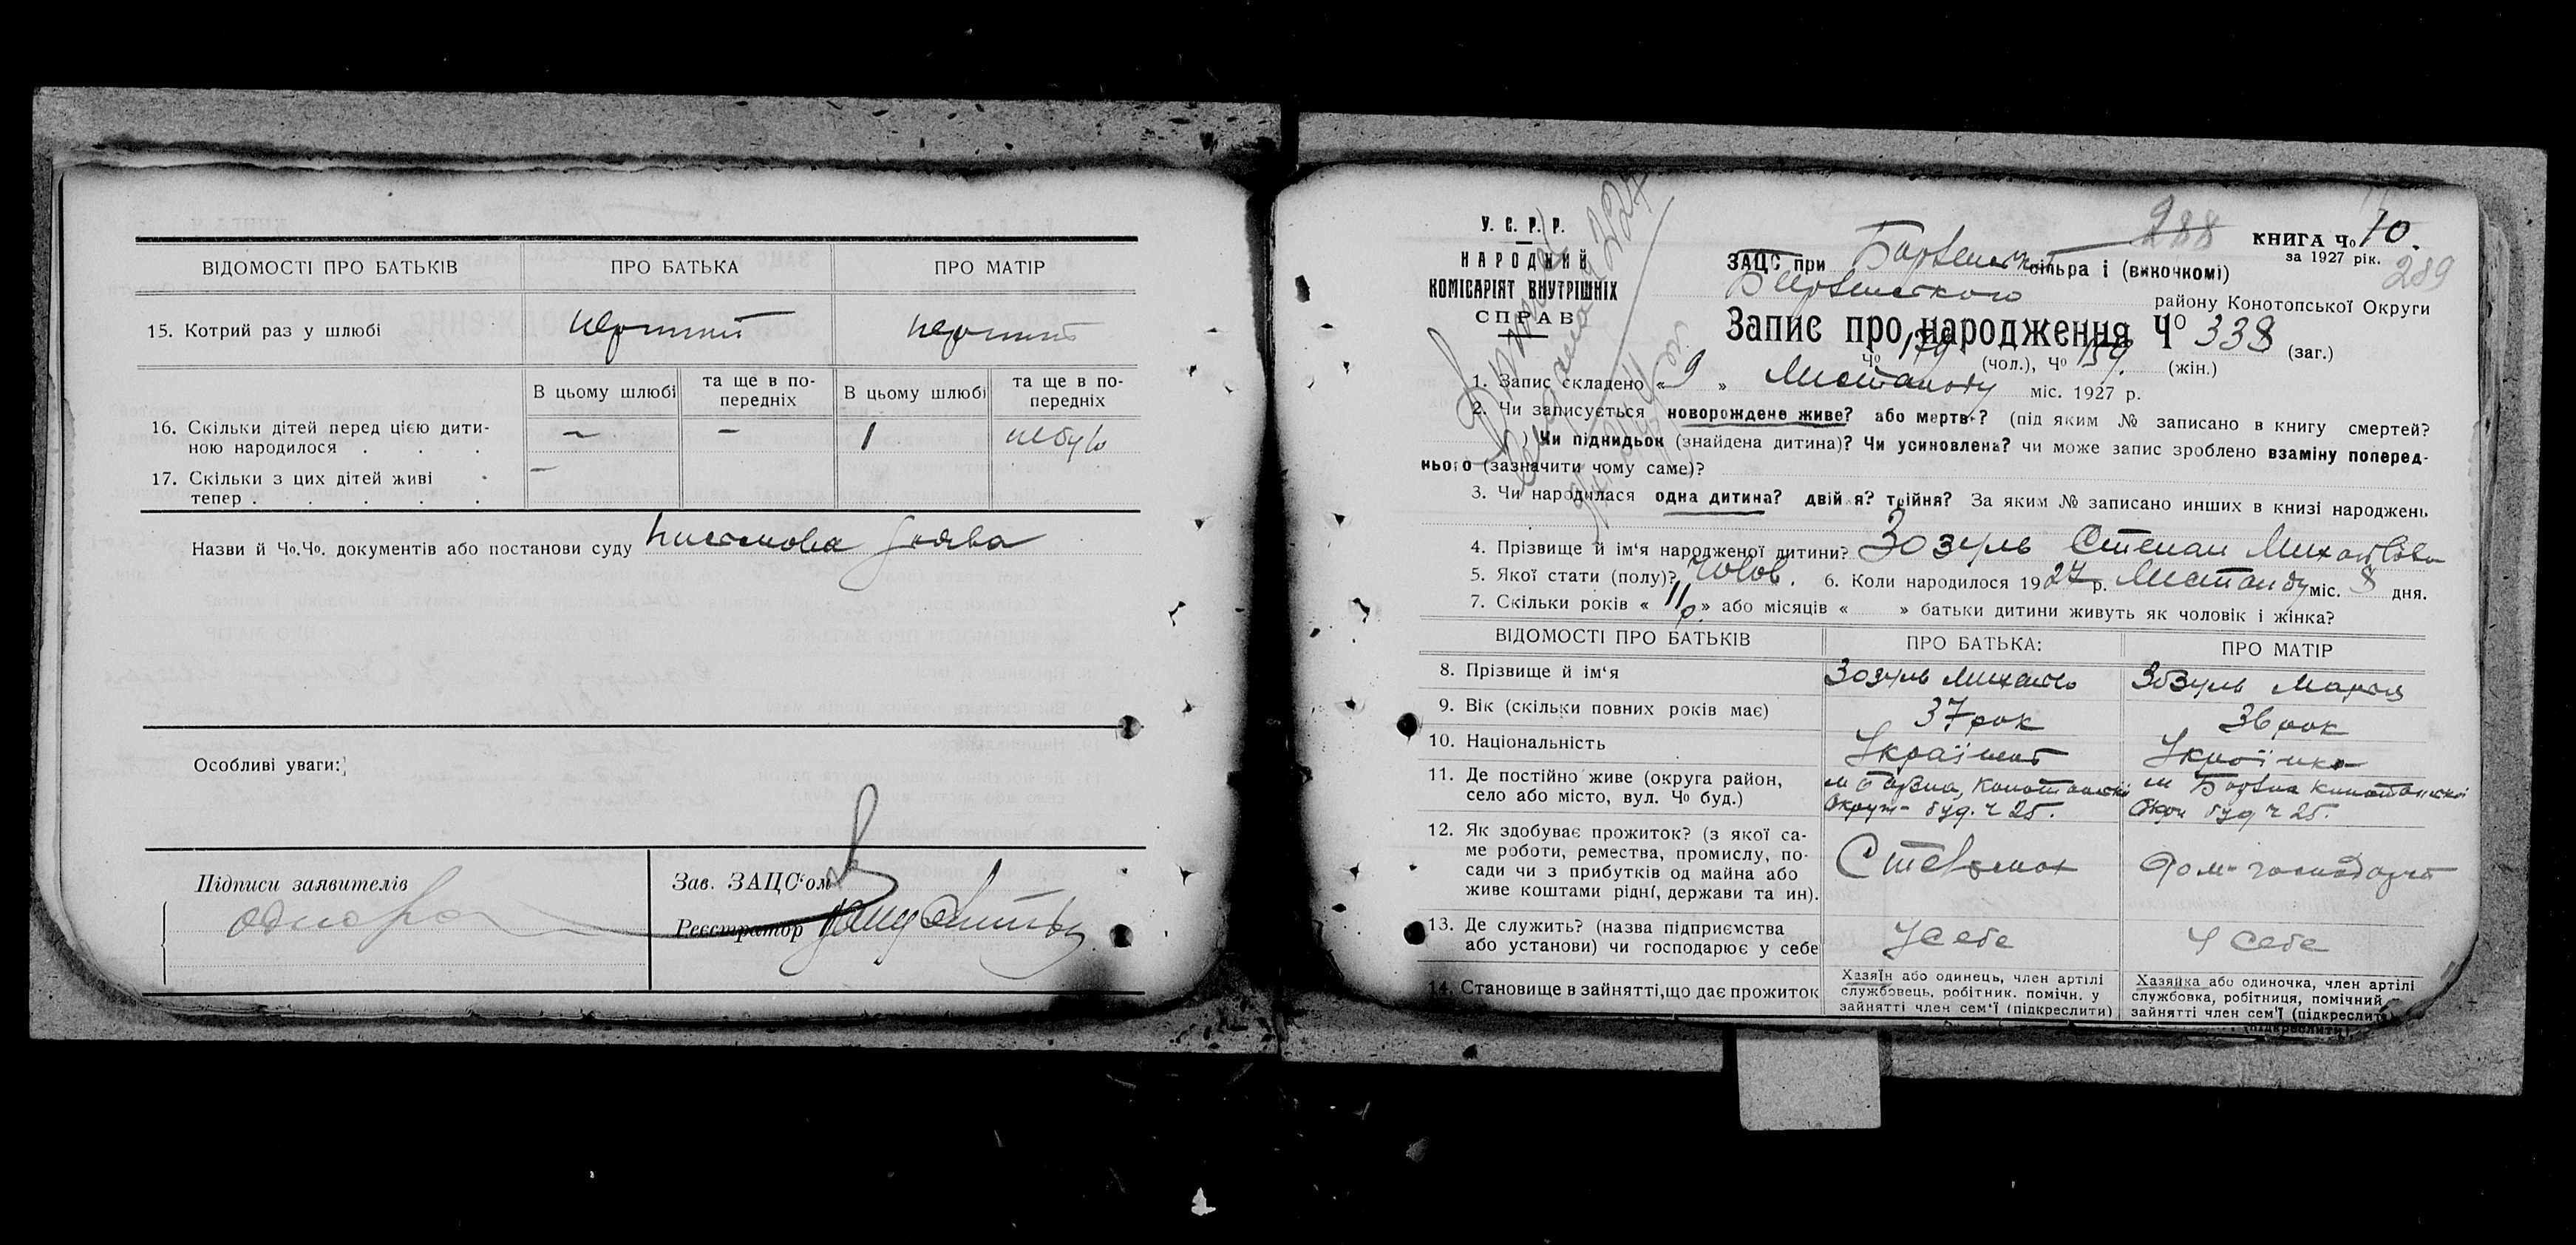 ВІДОМОСТІ ПРО БАТЬКІВ ПРО БАТЬКА ПРО МАТІР
15. Котрий раз у шлюбі перший перший
В цьому шлюбі та ще в по-передніх В цьому шлюбі та ще в по-передніх
16. Скільки дітей перед цією дити-
ною народилося . . . — — 1 не було
17. Скільки з цих дітей живі —
тепер . . . .
Назви й Чо.Чо. документів або постанови суду письмова заява
Особливі уваги:
Підписи заявителів
Зав. ЗАЦС'ом
Реєстратор
У. С. Р. Р.
НАРОДНИЙ
КОМІСАРІЯТ ВНУТРІШНІХ
СПРАВ
288
КНИГА Чо 10.
за 1927 рік.
289
ЗАЦС при сільра і (викочкомі)
району Конотопської Округи
Запис про народження Чо 338 (заг.)
Чо 179 (чол.), Чо 159. (жін.)
1. Запис складено « 9 » Листопаду міс. 1927 р.
2. Чи записується новорождене живе? або мертве? (під яким № записано в книгу смертей?
Чи піднидьок (знайдена дитина)? Чи усиновлена? чи може запис зроблено взаміну поперед-
нього (зазначити чому саме)?
3. Чи народилася одна дитина? двійня? трійня? За яким № записано инших в книзі народжень
4. Прізвище й ім'я народженої дитини? Зозуль Степан Михайлов
5. Якої стати (полу)? Чолов. 6. Коли народилося 1927 р. Листопаду міс. 8 дня.
7. Скільки років « 11 р » або місяців « » батьки дитини живуть як чоловік і жінка?
ВІДОМОСТІ ПРО БАТЬКІВ ПРО БАТЬКА: ПРО МАТІР
8. Прізвище й ім'я Зозуль Михайло Зозуль Мария
9. Вік (скільки повних років має) 37 рок 36 рок
10. Національність Українец Українка
11. Де постійно живе (округа район,
село або місто, вул. Чо буд.)
м Борзна, Конотопської
Округ буд. ч 25.
м Борзна Конотопської
Окру буд ч 25.
12. Як здобуває прожиток? (з якої са-
ме роботи, ремества, промислу, по-
сади чи з прибутків од майна або
живе коштами рідні, держави та ин).
Дом-господарст
13. Де служить? (назва підприємства
або установи) чи господарює у себе
У себе У себе
14. Становище в зайнятті, що дає прожиток
Хазяїн або одинець, член артілі
службовець, робітник. помічн. у
зайнятті член сем'ї (підкреслити)
Хазяйка або одиночка, член артілі
службовка, робітниця, помічний
зайнятті член сем'ї (підкреслити)
(підкреслити)